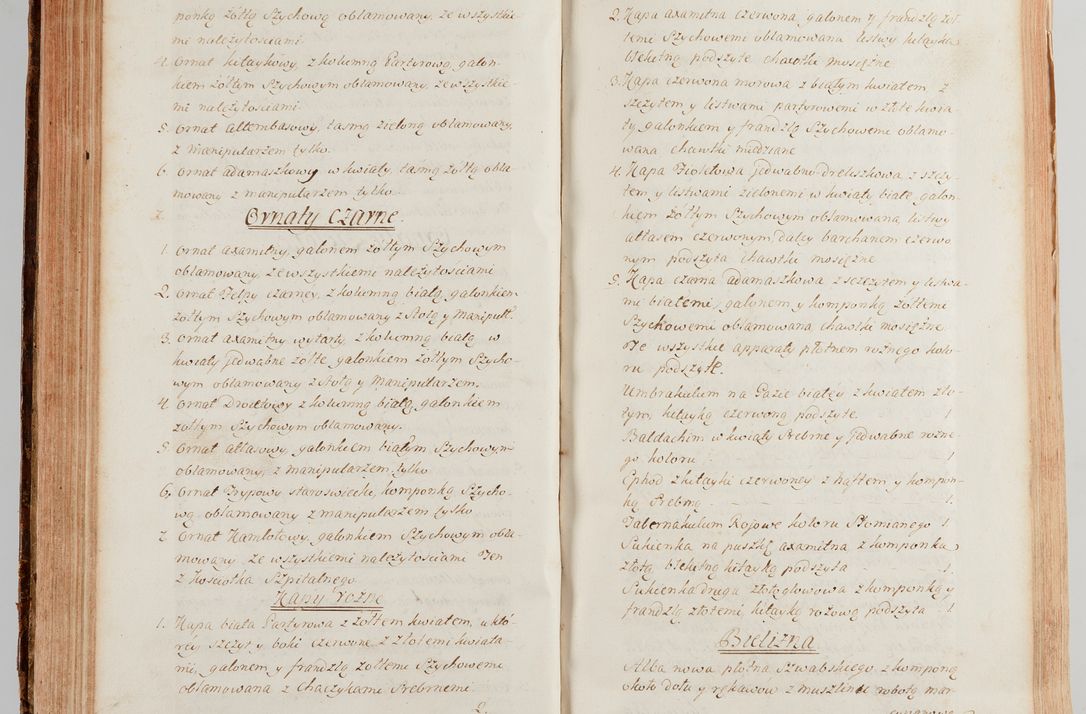 ponką żołtą Szychową oblamowany, ze wszystkie-
mi nalezytosciami
4. Ornat kitaykowy, z kolumną Partyrową, galon-
kiem żołtym Szychowym oblamowany, ze wszystkie-
mi nalezytosciami.
5. Ornat altembasowy, tasmą zieloną oblamowany,
z manipularzem tylko.
6. Ornat adamaszkowy w kwiaty, tasmą żołtą obla-
mowany z manipularzem tylko.
Ornaty Czarne.
1. Ornat axamitny, galonem żołtym Szychowym
oblamowany, ze wszystkiemi nalezytosciami
2. Ornat Felpy czarney, z kolumną białą, galonkiem
żołtym Szychowym oblamowany z Stołą y Manipuł:
3. Ornat axamitny wytarty, z kolumną białą w
kwiaty Jedwabne żołte, galonkiem żołtym Szycho-
wym oblamowany z Stołą y Manipularzem.
4. Ornat Drocłowy z kolumną białą, galonkiem
żołtym Szychowym oblamowany.
5. Ornat atłasowy, galonkiem białym Szychowym
oblamowany, z manipularzem tylko
6. Ornat Trypowy staroswiecki, komponką Szycho-
wą oblamowany z manipularzem tylko
7. Ornat Kamlotowy, galonkiem Szychowym obla-
mowany, ze wszystkiemi nalezytosciami Ten
z Kosciołka Szpitalnego.
Kapy rożne
1. Kapa biała Partyrowa z żołtem kwiatem, u któ-
réy szczyt y boki czerwone z złotemi kwiata-
mi, galonem y frandzlą żołtemi Szychowemi
oblamowana z chaczykami Srebrnemi.
2.
2. Kapa axamitna czerwona, galonem y frandzlą żoł-
temi Szychowemi oblamowana listwy kitayką
błękitną podszyte, chawtki mosiężne
3. Kapa czerwona morowa z białym kwiatem z
szczytem y listwami partyrowemi w złote kwia-
ty, galonkiem y frandzlą Szychowemi oblamo-
wana chawtki miedziane
4. Kapa Fiołetowa Jedwabno-dreliszkowa z szczy-
tem y listwami zielonemi w kwiaty białe, galon-
kiem żołtym Szychowym oblamowana, listwy
atłasem czerwonym, daley barchanem czerwo-
nym podszyta chawtki mosiężne
5. Kapa czarna adamaszkowa z szczytem y listwa-
mi białemi, galonem y komponką żołtemi
Szychowemi oblamowana chawtki mosiężne
Te wszystkie apparaty płotnem rożnego kolo-
ru podszyte.
Umbrakulum na Gazie białey z kwiatem zło-
tym, kitayką czerwoną podszyte. 1
Baldachim w kwiaty Srebrne y Jedwabne rożne-
go koloru - 1.
Ephod z kitayki czerwoney z haftem y kompon-
ką Srebrną - 1.
Tabernakulum Rojowe koloru Słomianego 1.
Sukienka na puszkę axamitna z komponką
złotą, błękitną kitayką podszyta - 1.
Sukienka druga złotogłowowa z komponką y
frandzlą złotemi, kitayką rożową podszyta - 1.
Bielizna
Alba nowa płotna Szwabskiego z komponą
około dołu y rękawow z muszlinu robotą mar-